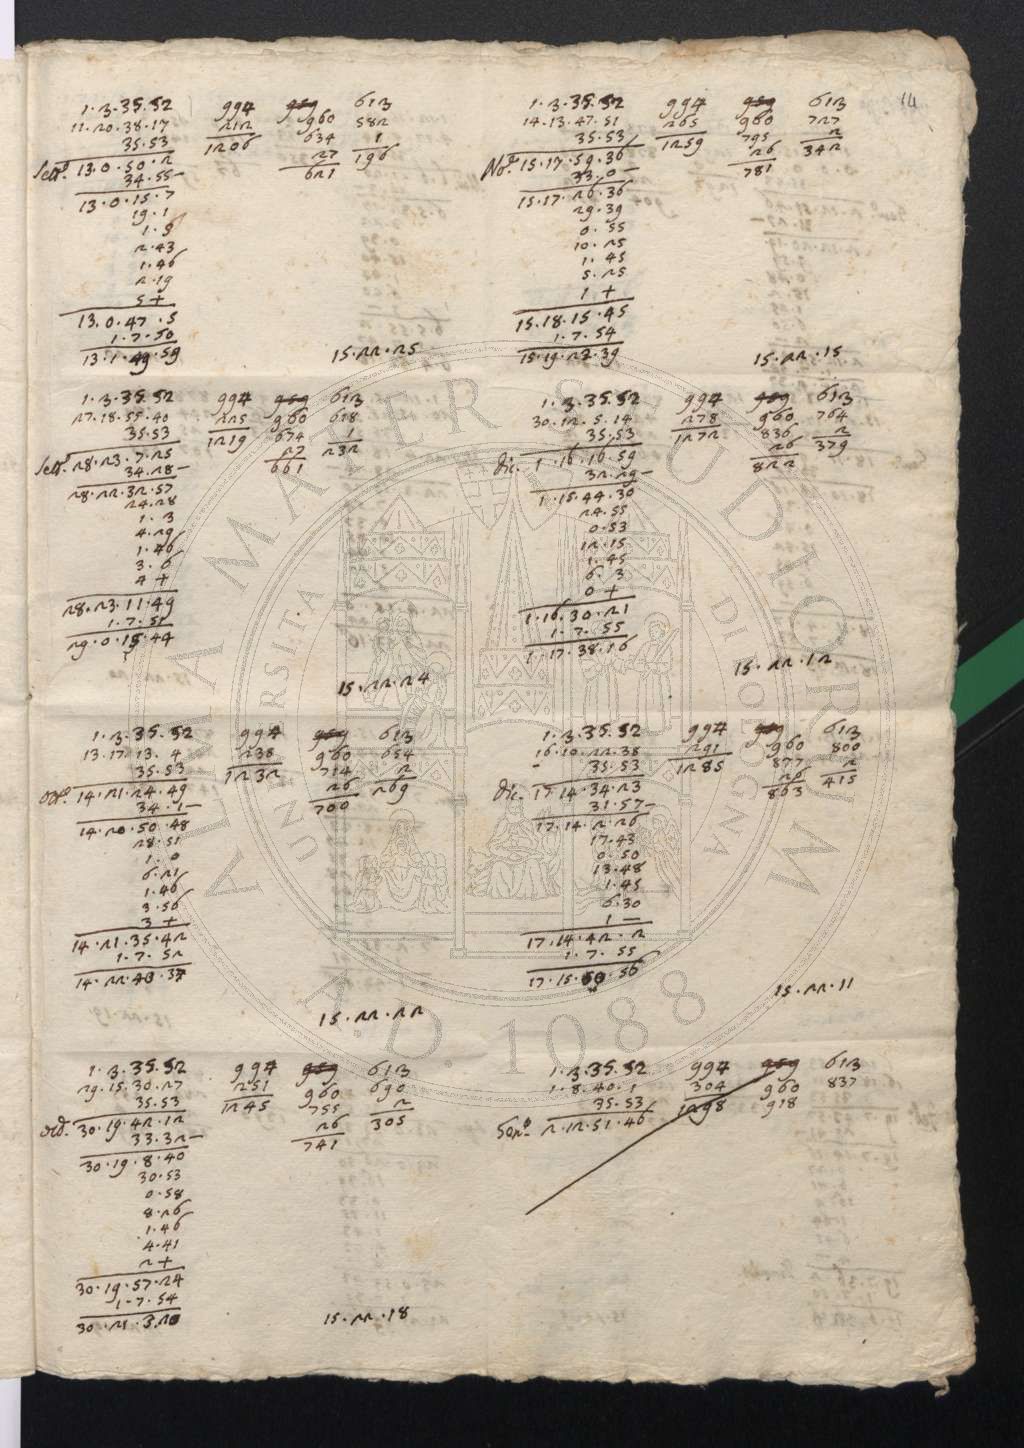 14
1·2·35·52 994 959 612
11·20·38·17 212 960 582
35·53 1206 634 1
Sett.e 13·0·50·2 27 196
34·55– 621
13·0·15·7
19·1
1·9
2·43
1·46
2·19
5+
13·0·47·5
1·7·50
13·1·49·59
15·22·25
1·2·35·52 994 959 612
27·18·55·40 225 960 618
35·53 1219 674 1
Sett.e 28·23·7·25 27 232
34·28– 661
28·22·32·57
24·28
1·3
4·29
1·46
3·6
4+
28·23·11·49
1·7·51
29·0·15·44
15·22·24
1·2·35·52 994 959 612
13·17·13·4 238 960 654
35·53 1232 714 2
14·21·24·49 26 269
34·1– 700
14·20·50·48
28·51
1·0
6·21
1·46
3·56
3+
14·21·35·42
1·7·52
14·22·43·37
15·22·22
1·2·35·52 994 959 612
29·15·30·27 251 960 690
35·53 1245 755 2
30·19·42·12 26 305
33·32– 741
30·19·8·40
30·53
0·58
8·26
1·46
4·41
2+
30·19·57·24
1·7·54
15·22·18
1·2·35·52 994 959 612
14·13·47·51 265 960 727
35·53 1259 795 2
No.e 15·17·59·36 26 342
33·0– 781
15·17·26·36
29·39
0·55
10·25
1·45
5·25
1+
15·18·15·45
1·7·54
15·19·23·39
15·22·15
1·2·35·52 994 959 612
30·12·5·14 278 960 764
35·53 1272 836 2
dic. 1·16·16·59 26 379
32·29– 822
1·15·44·30
24·55
0·53
12·15
1·45
6·3
0+
1·16·30·21
1·7·55
1·17·38·16
15·22·12
1·2·35·52 994 959 612
16·10·22·38 291 960 800
35·53 1285 877 2
dic. 17·14·34·23 26 415
31·57– 863
17·14·2·26
17·43
0·50
13·48
1·45
6·30
1–
17·14·42·2
1·7·55
15·22·11
1·2·35·52 994 959 612
1·8·40·1 304 960 837
35·53 1298 918
2·12·51·46
ALMA MATER STUDIORUM
UNIVERSITA DI BOLOGNA
A.D. 1088